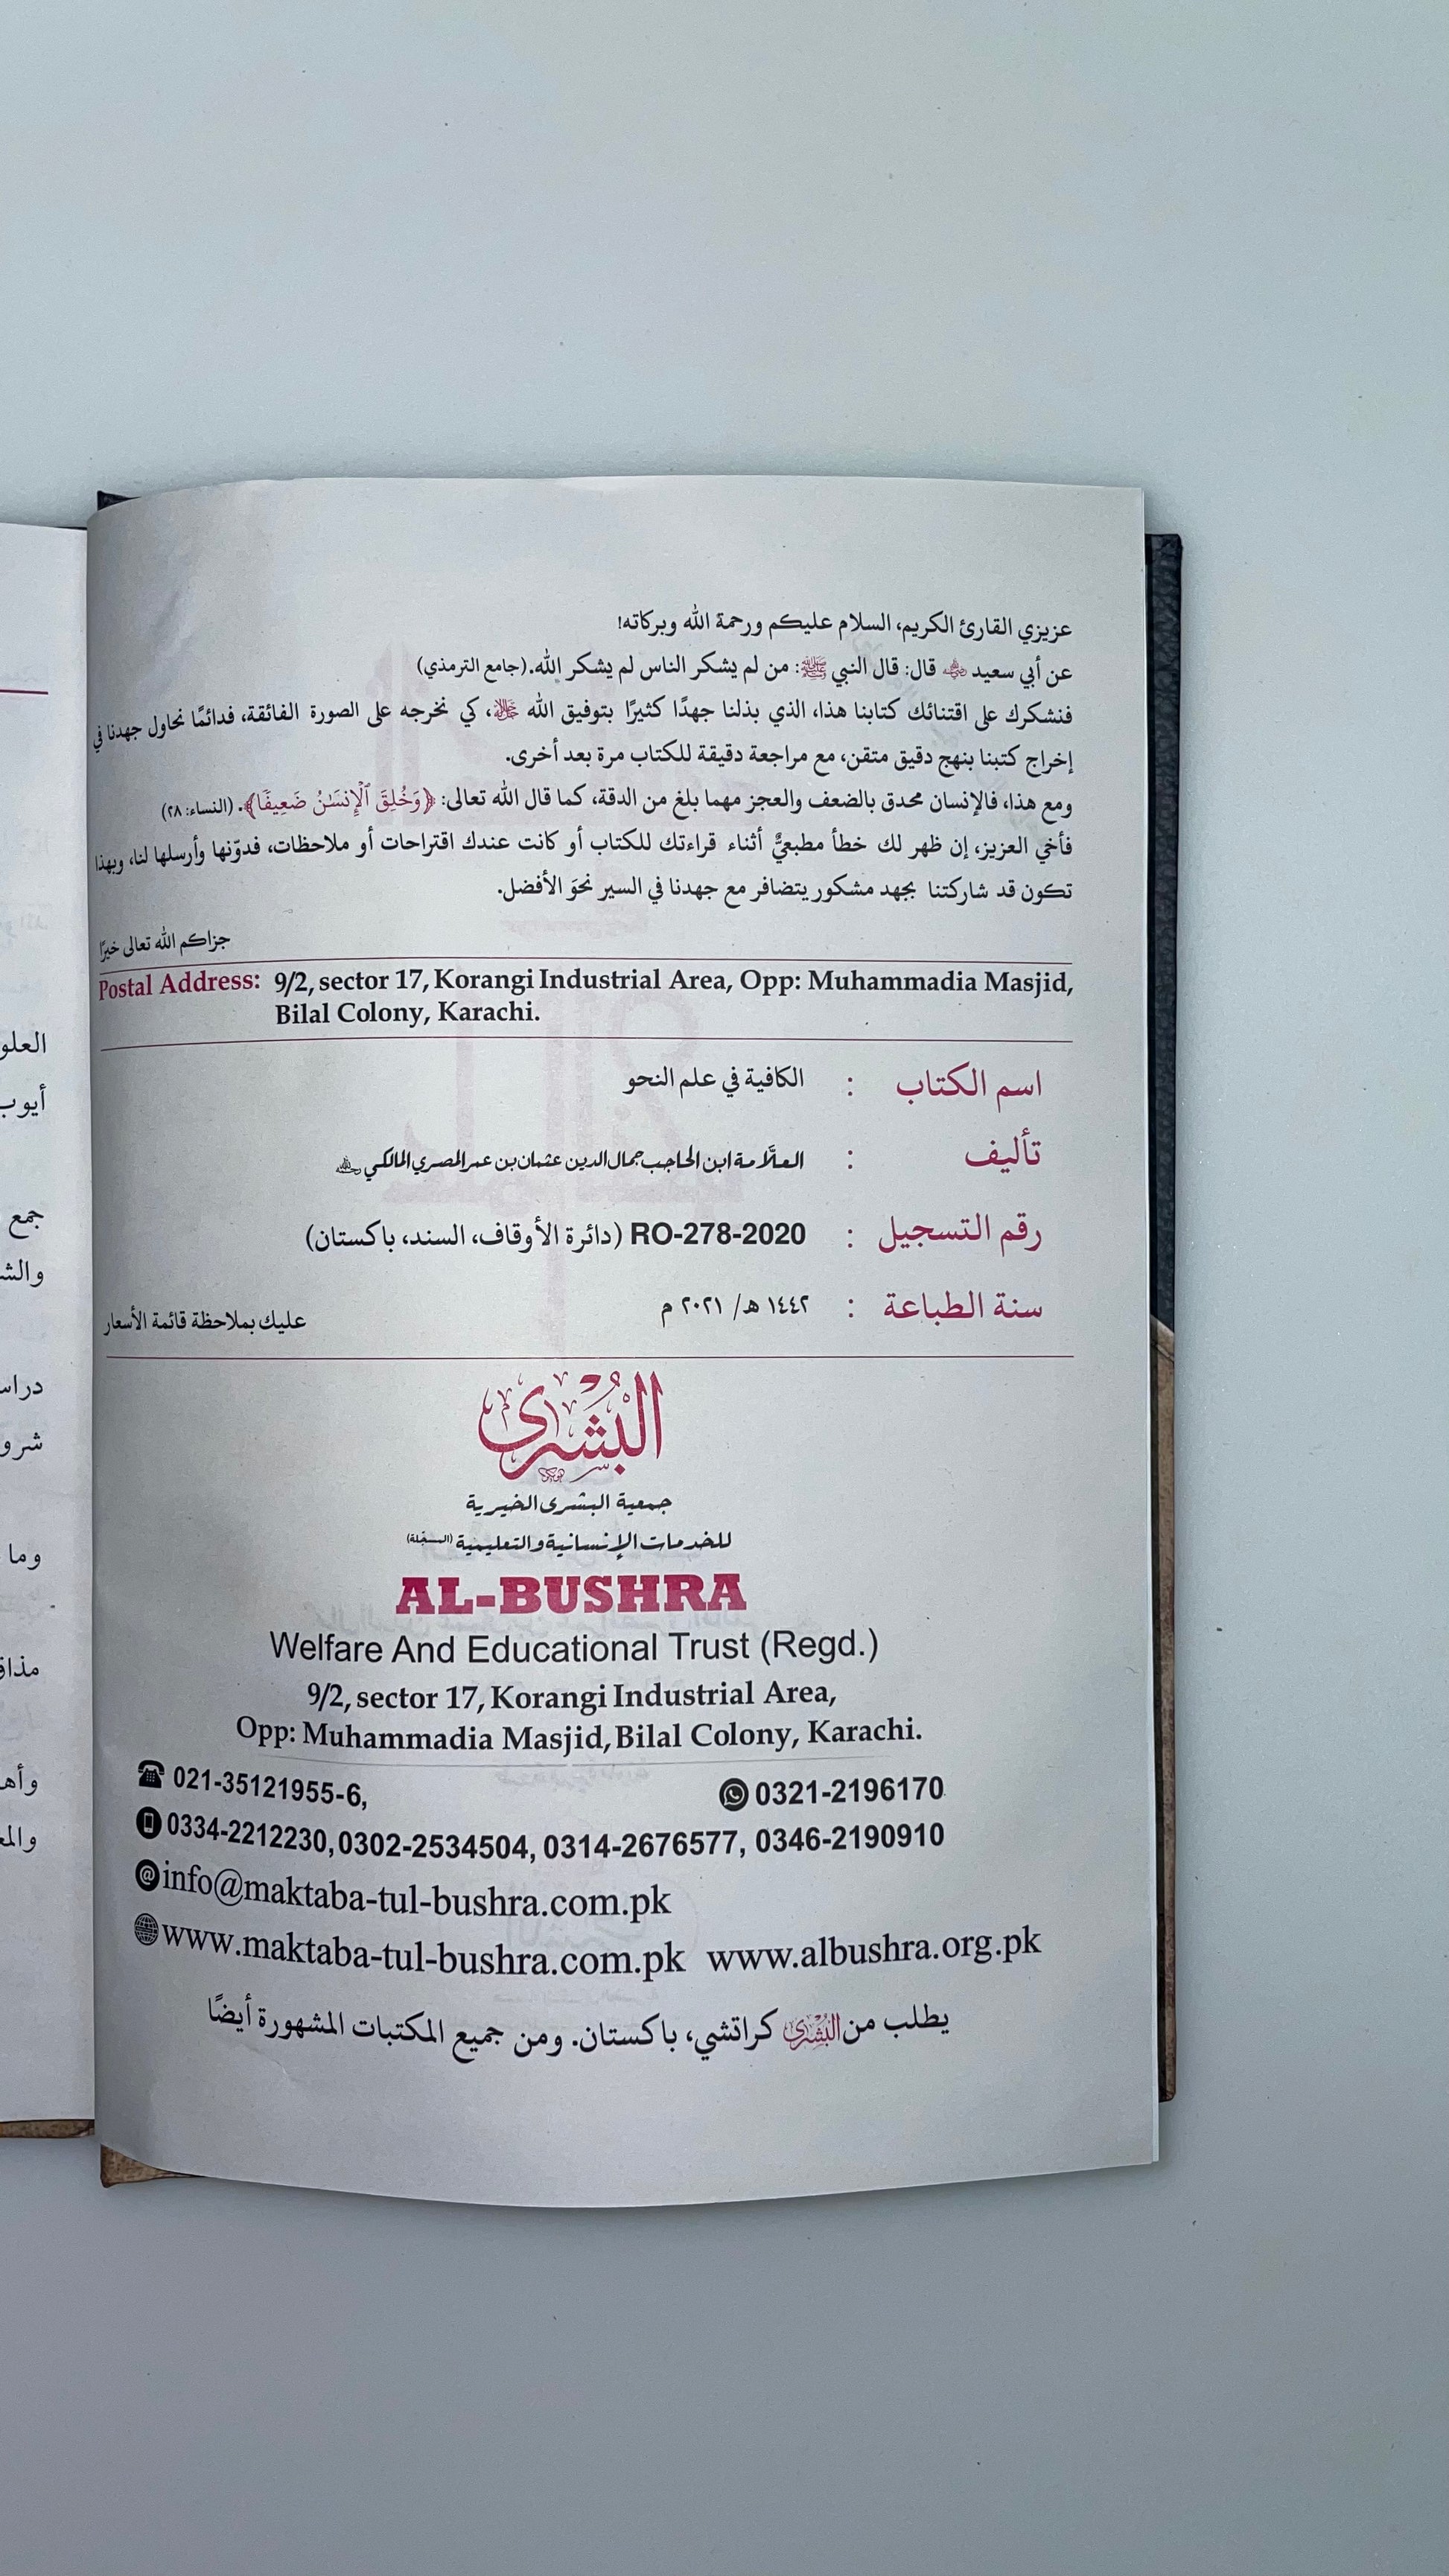 عزيزي القارئ الكريم، السلام عليكم ورحمة الله وبركاته!
عن أبي سعيد ﷺ قال: قال النبي ﷺ: من لم يشكر الناس لم يشكر الله.(جامع الترمذي)
فنشكرك على اقتنائك كتابنا هذا، الذي بذلنا جهدًا كثيرًا بتوفيق الله ﷻ، كي نخرجه على الصورة الفائقة، فدائمًا نحاول جهدنا في
إخراج كتبنا بنهج دقيق متقن، مع مراجعة دقيقة للكتاب مرة بعد أخرى.
ومع هذا، فالإنسان محدق بالضعف والعجز مهما بلغ من الدقة، كما قال الله تعالى: ﴿وَخُلِقَ ٱلْإِنسَـٰنُ ضَعِيفًا﴾. (النساء: ٢٨)
فأخي العزيز، إن ظهر لك خطأ مطبعيٌّ أثناء قراءتك للكتاب أو كانت عندك اقتراحات أو ملاحظات، فدوّنها وأرسلها لنا، وبهذا
تكون قد شاركتنا بجهد مشكور يتضافر مع جهدنا في السير نحوَ الأفضل.
جزاكم الله تعالى خيرًا
Postal Address: 9/2, sector 17, Korangi Industrial Area, Opp: Muhammadia Masjid,
Bilal Colony, Karachi.
اسم الكتاب : الكافية في علم النحو
تأليف : العلَّامة ابن الحاجب جمال الدين عثمان بن عمر المصري المالكي
رقم التسجيل : RO-278-2020 (دائرة الأوقاف، السند، باكستان)
سنة الطباعة : ١٤٤٢ هـ/ ٢٠٢١ م
عليك بملاحظة قائمة الأسعار
البُشرى
جمعية البشرى الخيرية
للخدمات الإنسانية والتعليمية (المسجّلة)
AL-BUSHRA
Welfare And Educational Trust (Regd.)
9/2, sector 17, Korangi Industrial Area,
Opp: Muhammadia Masjid, Bilal Colony, Karachi.
021-35121955-6, 0321-2196170
0334-2212230, 0302-2534504, 0314-2676577, 0346-2190910
info@maktaba-tul-bushra.com.pk
www.maktaba-tul-bushra.com.pk www.albushra.org.pk
يطلب من البُشرى كراتشي، باكستان. ومن جميع المكتبات المشهورة أيضًا
أيوب
جمع
وما